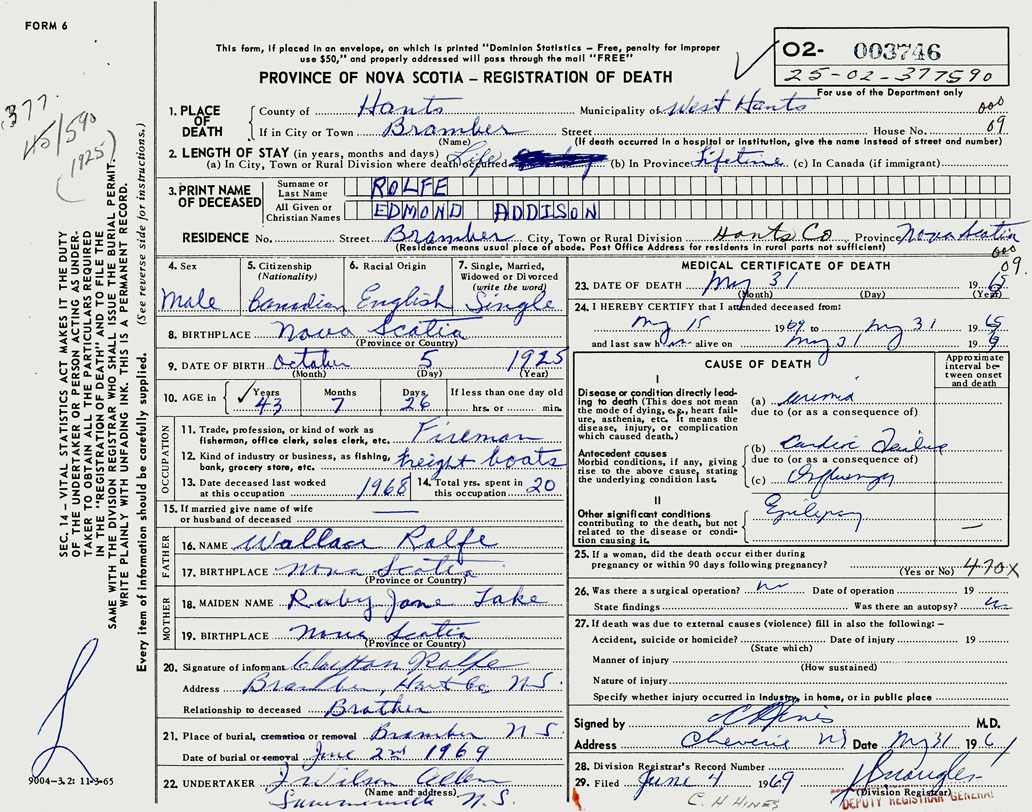 FORM 6
This form, if placed in an envelope, on which is printed "Dominion Statistics – Free, penalty for improper
use $50," and properly addressed will pass through the mail "FREE"
PROVINCE OF NOVA SCOTIA – REGISTRATION OF DEATH
02- 003746
25-02-377590
For use of the Department only
377
590
1925
1. PLACE OF DEATH
County of Hants Municipality of West Hants 000
If in City or Town Bramber Street House No. 09
(Name) (If death occurred in a hospital or institution, give the name instead of street and number)
2. LENGTH OF STAY (in years, months and days) Life
(a) In City, Town or Rural Division where death occurred (b) In Province Lifetime (c) In Canada (if immigrant)
3. PRINT NAME OF DECEASED
Surname or Last Name ROLFE
All Given or Christian Names EDMOND ADDISON
RESIDENCE No. Street Bramber City, Town or Rural Division Hants Co Province Nova Scotia
(Residence means usual place of abode. Post Office Address for residents in rural parts not sufficient)
000
09.
4. Sex Male
5. Citizenship (Nationality) Canadian
6. Racial Origin English
7. Single, Married, Widowed or Divorced (write the word) Single
8. BIRTHPLACE Nova Scotia
(Province or Country)
9. DATE OF BIRTH October 5 1925
(Month) (Day) (Year)
10. AGE in Years 43 Months 7 Days 26 If less than one day old hrs. or min.
OCCUPATION
11. Trade, profession, or kind of work as fisherman, office clerk, sales clerk, etc. Fireman
12. Kind of industry or business, as fishing, bank, grocery store, etc. freight boats
13. Date deceased last worked at this occupation 1968
14. Total yrs. spent in this occupation 20
15. If married give name of wife or husband of deceased —
FATHER
16. NAME Wallace Rolfe
17. BIRTHPLACE Nova Scotia
(Province or Country)
MOTHER
18. MAIDEN NAME Ruby Jane Lake
19. BIRTHPLACE Nova Scotia
(Province or Country)
20. Signature of informant Clayton Rolfe
Address Bramber, Hants Co. N.S.
Relationship to deceased Brother
21. Place of burial, cremation or removal Bramber N S
Date of burial or removal June 2nd 1969
22. UNDERTAKER J Wilson Allen
(Name and address)
Summerville N.S.
MEDICAL CERTIFICATE OF DEATH
23. DATE OF DEATH May 31 19 69
(Month) (Day) (Year)
24. I HEREBY CERTIFY that I attended deceased from:
May 15 1969 to May 31 1969
and last saw him alive on May 31 1969
CAUSE OF DEATH
Approximate interval between onset and death
I
Disease or condition directly leading to death (This does not mean the mode of dying, e.g., heart failure, asthenia, etc. It means the disease, injury, or complication which caused death.)
(a) uremia
due to (or as a consequence of)
Antecedent causes
Morbid conditions, if any, giving rise to the above cause, stating the underlying condition last.
(b) Cardiac Failure
due to (or as a consequence of)
(c) Influenza
II
Other significant conditions contributing to the death, but not related to the disease or condition causing it.
Epilepsy —
25. If a woman, did the death occur either during pregnancy or within 90 days following pregnancy? (Yes or No) 470X
26. Was there a surgical operation? no Date of operation 19
State findings Was there an autopsy? no
27. If death was due to external causes (violence) fill in also the following: –
Accident, suicide or homicide? Date of injury 19
(State which)
Manner of injury
(How sustained)
Nature of injury
Specify whether injury occurred in industry, in home, or in public place
Signed by C H Hines M.D.
Address Cheverie NS Date May 31 196
28. Division Registrar's Record Number
29. Filed June 4 1969
(Division Registrar)
C. H HINES
DEPUTY REGISTRAR GENERAL
SEC. 14 – VITAL STATISTICS ACT MAKES IT THE DUTY
OF THE UNDERTAKER OR PERSON ACTING AS UNDER-
TAKER TO OBTAIN ALL THE PARTICULARS REQUIRED
IN THE "REGISTRATION OF DEATH" AND TO FILE THE
SAME WITH THE DIVISION REGISTRAR WHO SHALL ISSUE THE BURIAL PERMIT.
WRITE PLAINLY WITH UNFADING INK. THIS IS A PERMANENT RECORD.
Every item of information should be carefully supplied. (See reverse side for instructions.)
9004-3.2: 11-3-65